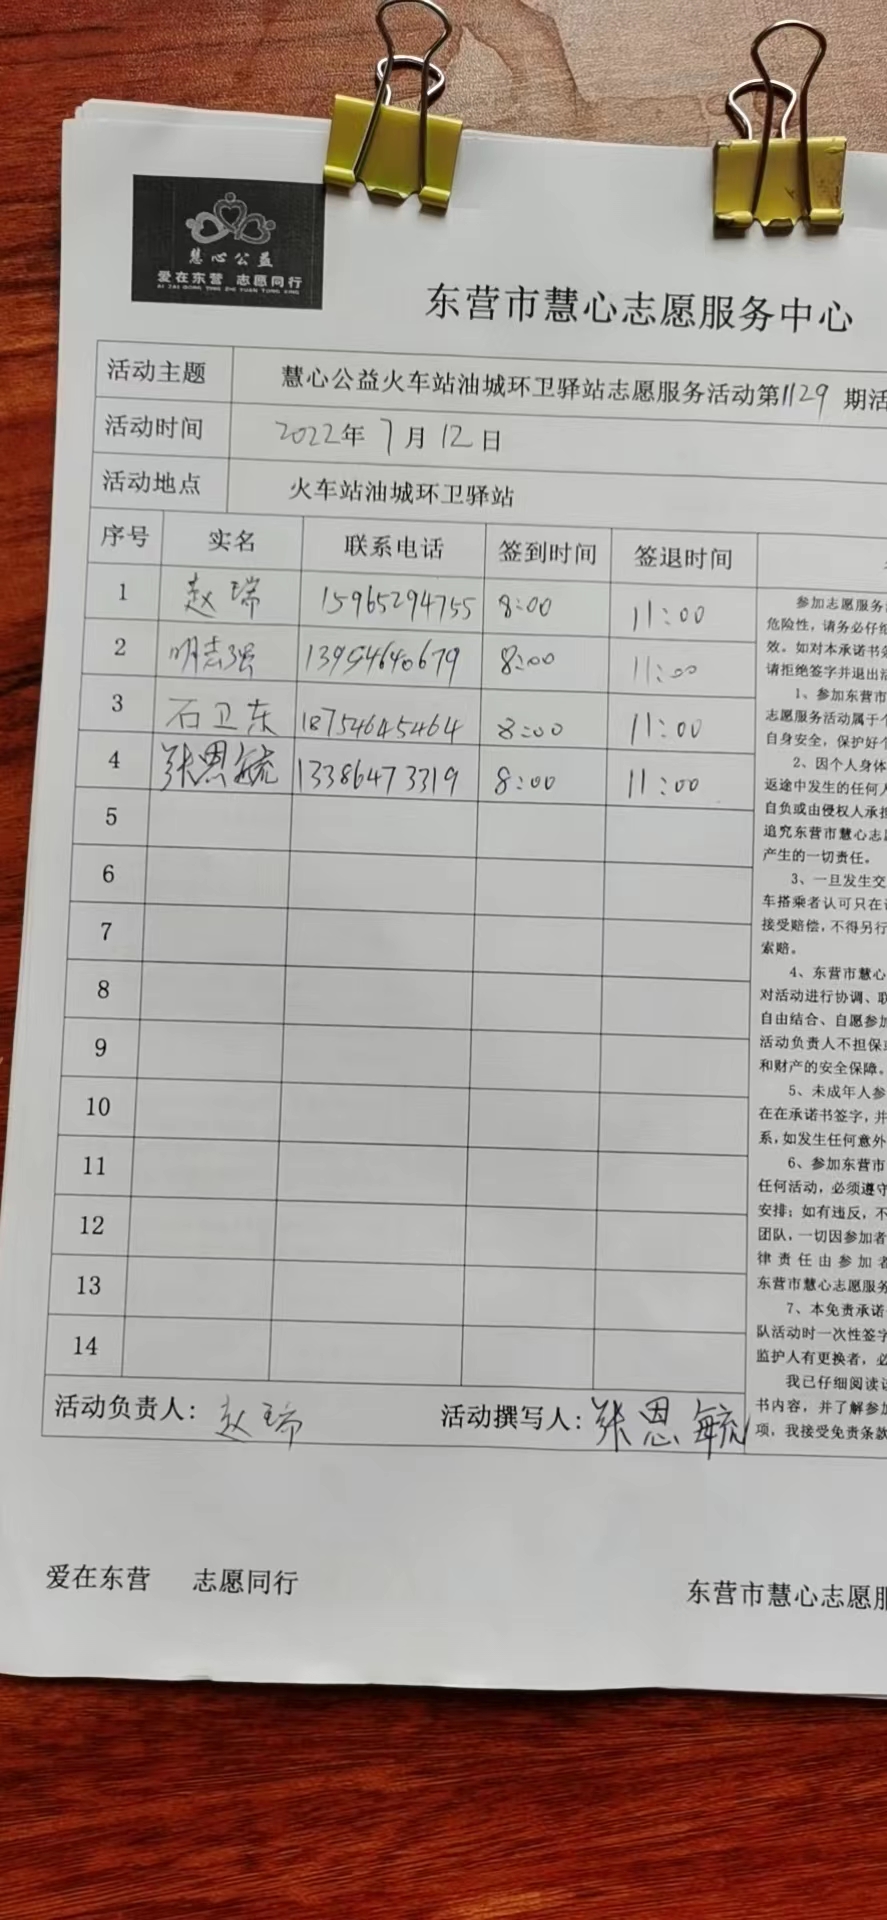 慧心公益
爱在东营 志愿同行
AI ZAI DONG YING ZHI YUAN TONG XING
东营市慧心志愿服务中心
活动主题 慧心公益火车站油城环卫驿站志愿服务活动第1129 期活
活动时间 2022年 7月 12日
活动地点 火车站油城环卫驿站
序号 实名 联系电话 签到时间 签退时间
1 赵瑞 15965294755 8:00 11:00
2 明志强 13954640679 8:00 11:00
3 石卫东 18754645464 8:00 11:00
4 张恩毓 13386473319 8:00 11:00
5
6
7
8
9
10
11
12
13
14
参加志愿服务
危险性，请务必仔细
效。如对本承诺书条
请拒绝签字并退出活
1、参加东营市
志愿服务活动属于个
自身安全，保护好个
2、因个人身体
返途中发生的任何人
自负或由侵权人承担
追究东营市慧心志愿
产生的一切责任。
3、一旦发生交
车搭乘者认可只在
接受赔偿，不得另行
索赔。
4、东营市慧心
对活动进行协调、联
自由结合、自愿参加
活动负责人不担保
和财产的安全保障。
5、未成年人参
在在承诺书签字，并
系，如发生任何意外
6、参加东营市
任何活动，必须遵守
安排；如有违反，不
团队，一切因参加者
律责任由参加者
东营市慧心志愿服务
7、本免责承诺
队活动时一次性签字
监护人有更换者，必
我已仔细阅读
书内容，并了解参加
项，我接受免责条款
活动负责人：赵瑞 活动撰写人：张恩毓
爱在东营 志愿同行 东营市慧心志愿服